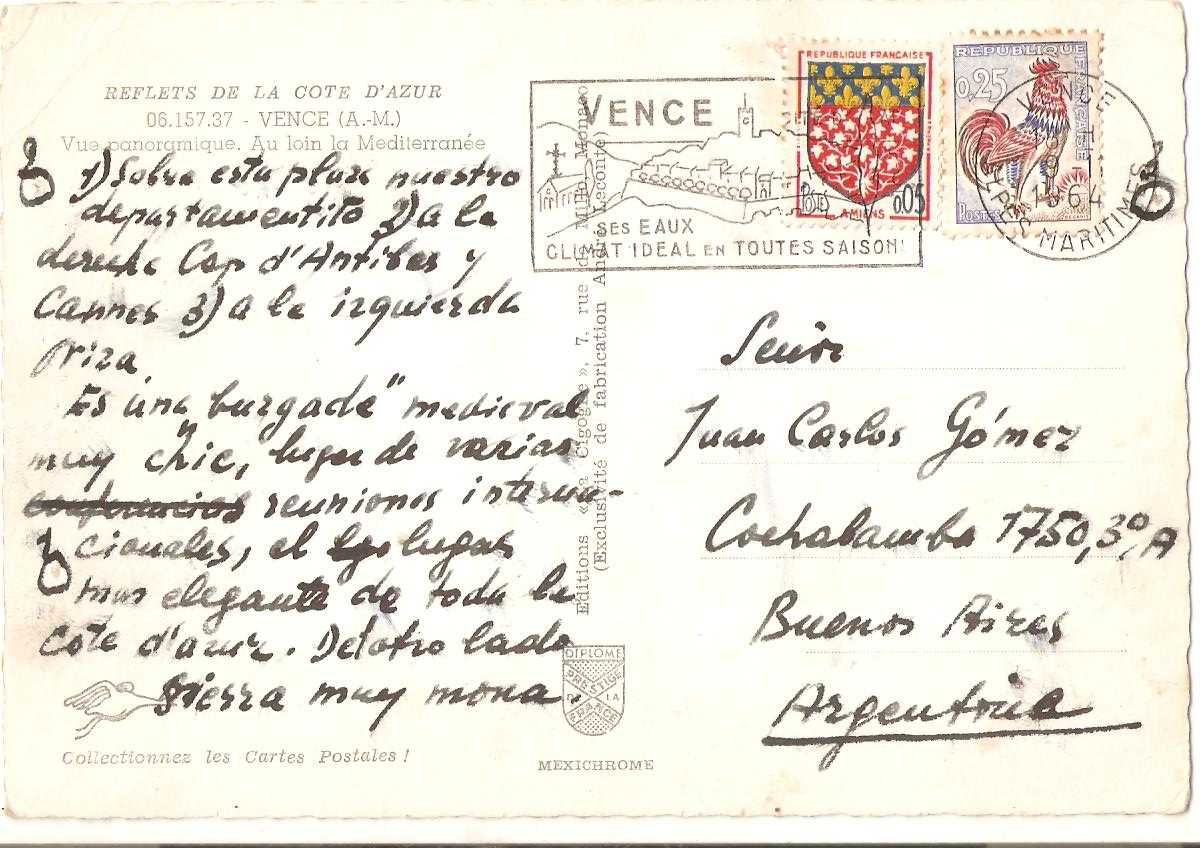 REFLETS DE LA COTE D'AZUR
06.157.37 - VENCE (A.-M.)
Vue panoramique. Au loin la Mediterranée
1) Sobre esta plaza nuestro
departamentito 2) a la
derecha Cap d'Antibes y
Cannes 3) a la izquierda
Niza
Es una "burgade" medieval
muy chic, lugar de varias
conferencias reuniones interna-
cionales, el lugar
mas elegante de toda la
Cote d'azur. Del otro lado
Sierra muy mona.
Collectionnez les Cartes Postales !
Editions «La Cigogne», 7, rue de Millo, Monaco
(Exclusivité de fabrication André Leconte)
DIPLOME
PRESTIGE
DE LA
FRANCE
MEXICHROME
VENCE
SES EAUX
CLIMAT IDEAL EN TOUTES SAISONS
REPUBLIQUE FRANÇAISE
POSTES
0,05
AMIENS
REPUBLIQUE FRANÇAISE
0,25
POSTES
VENCE
1964
ALPES MARITIMES
Señor
Juan Carlos Gómez
Cochabamba 1750, 3º, A
Buenos Aires
Argentina